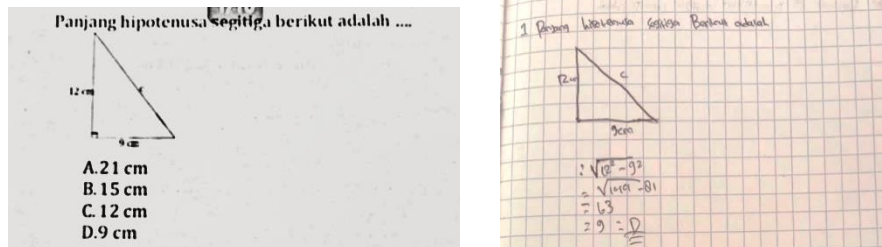 Panjang hipotenusa segitiga berikut adalah ....
12 cm
c
9 cm
A.21 cm
B.15 cm
C.12 cm
D.9 cm
1 Panjang segitiga Berikut adalah
12 cm
c
9cm
: √12² - 9²
= √144 - 81
= 63
= 9 = D